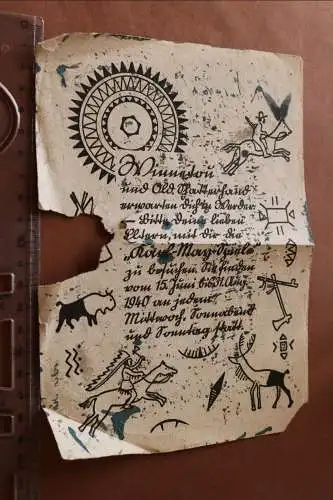 Winnetou
und Old Shatterhand
erwarten dich, Werder
– Bitte deine lieben
Eltern, mit dir die
„Karl-May-Spiele“
zu besuchen. Sie finden
vom 15. Juni bis 11. Aug.
1940 an jedem
Mittwoch, Sonnabend
und Sonntag statt.